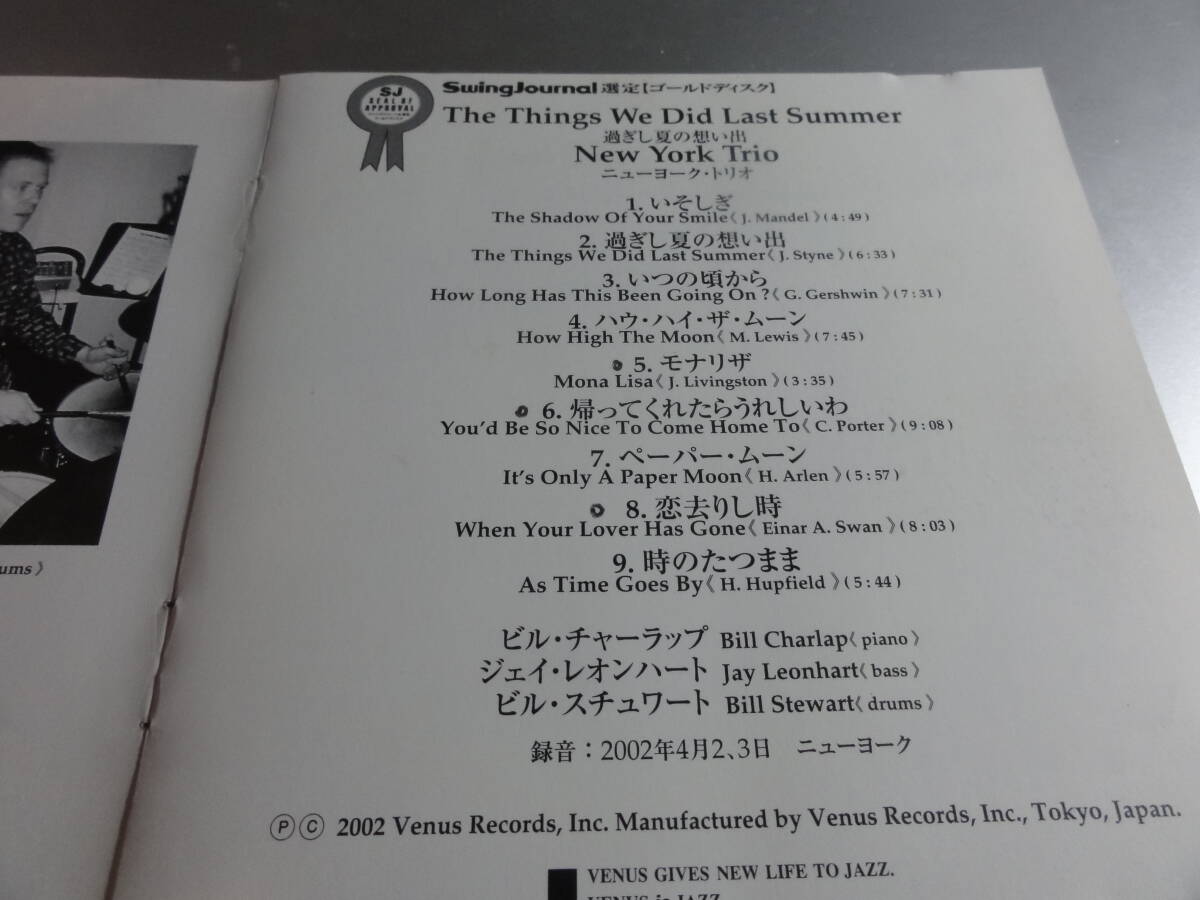 SJ
SEAL OF
APPROVAL
SwingJournal 選定【ゴールドディスク】
The Things We Did Last Summer
過ぎし夏の想い出
New York Trio
ニューヨーク・トリオ
1. いそしぎ
The Shadow Of Your Smile《 J. Mandel 》(4:49)
2. 過ぎし夏の想い出
The Things We Did Last Summer《 J. Styne 》(6:33)
3. いつの頃から
How Long Has This Been Going On ?《 G. Gershwin 》(7:31)
4. ハウ・ハイ・ザ・ムーン
How High The Moon《 M. Lewis 》(7:45)
5. モナリザ
Mona Lisa《 J. Livingston 》(3:35)
6. 帰ってくれたらうれしいわ
You'd Be So Nice To Come Home To《 C. Porter 》(9:08)
7. ペーパー・ムーン
It's Only A Paper Moon《 H. Arlen 》(5:57)
8. 恋去りし時
When Your Lover Has Gone《 Einar A. Swan 》(8:03)
9. 時のたつまま
As Time Goes By《 H. Hupfield 》(5:44)
ビル・チャーラップ Bill Charlap《 piano 》
ジェイ・レオンハート Jay Leonhart《 bass 》
ビル・スチュワート Bill Stewart《 drums 》
録音：2002年4月2、3日 ニューヨーク
ums 》
Ⓟ Ⓒ 2002 Venus Records, Inc. Manufactured by Venus Records, Inc., Tokyo, Japan.
VENUS GIVES NEW LIFE TO JAZZ.
VENUS is JAZZ